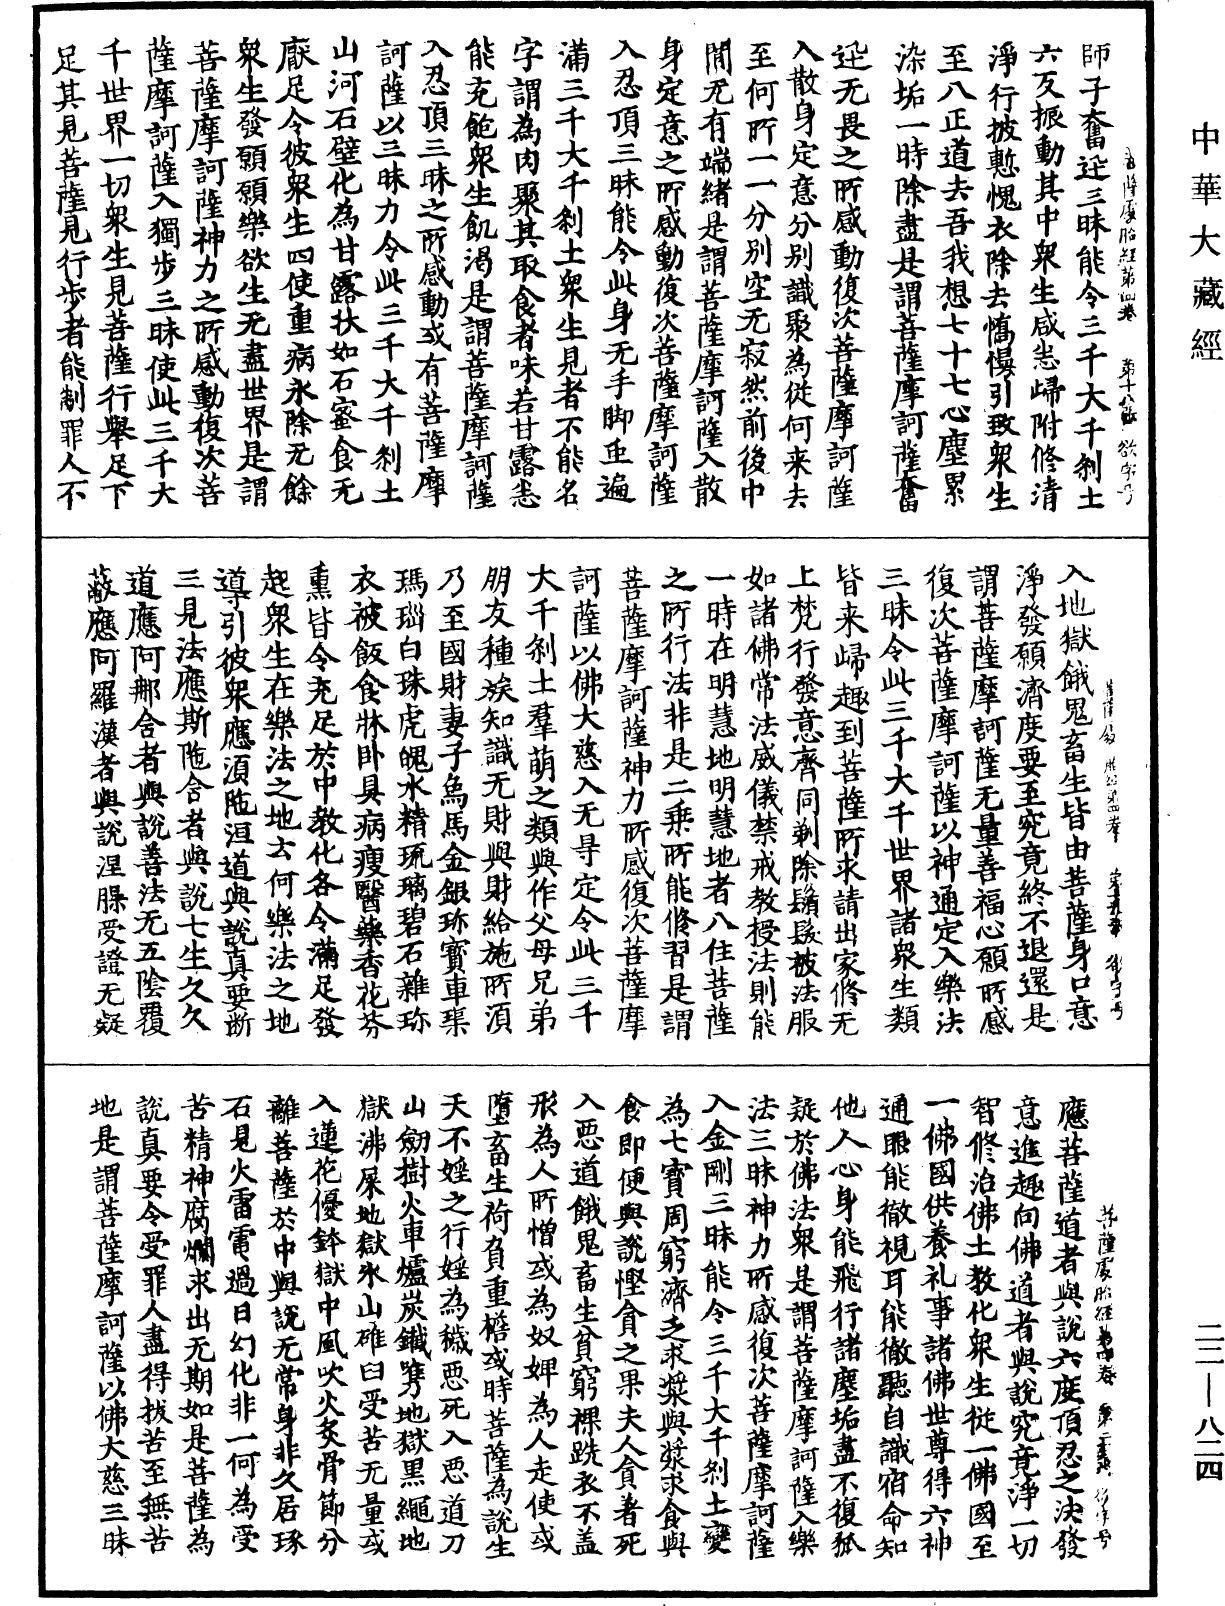 中華大藏經
師子奮迅三昧能令三千大千剎土
六反振動其中衆生咸悉歸附修清
淨行披慙愧衣除去憍慢引致衆生
至八正道去吾我想七十七心塵累
染垢一時除盡是謂菩薩摩訶薩奮
迅无畏之所感動復次菩薩摩訶薩
入散身定意分別識聚為從何来去
至何所一一分別空无寂然前後中
間无有端緒是謂菩薩摩訶薩入散
身定意之所感動復次菩薩摩訶薩
入忍頂三昧能令此身无手脚重遍
滿三千大千剎土衆生見者不能名
字謂為肉聚其取食者味若甘露悉
能充飽衆生飢渴是謂菩薩摩訶薩
入忍頂三昧之所感動或有菩薩摩
訶薩以三昧力令此三千大千剎土
山河石壁化為甘露狀如石蜜食无
猒足令彼衆生四使重病永除无餘
衆生發願願樂欲生无盡世界是謂
菩薩摩訶薩神力之所感動復次菩
薩摩訶薩入獨步三昧使此三千大
千世界一切衆生見菩薩行舉足下
足其見菩薩見行步者能制罪人不
入地獄餓鬼畜生皆由菩薩身口意
淨發願濟度要至究竟終不退還是
謂菩薩摩訶薩无量善福心願所感
復次菩薩摩訶薩以神通定入樂法
三昧令此三千大千世界諸衆生類
皆来歸趣到菩薩所求請出家修无
上梵行發意齊同剃除鬚髮被法服
如諸佛常法威儀禁戒教授法則能
一時在明慧地明慧地者八住菩薩
之所行法非是二乗所能修習是謂
菩薩摩訶薩神力所感復次菩薩摩
訶薩以佛大慈入无㝵定令此三千
大千剎土羣萌之類與作父母兄弟
朋友種族知識无財與財給施所須
乃至國財妻子象馬金銀珎寶車𤦲
瑪瑙白珠虎魄水精琉璃碧石雜珎
衣被飯食牀卧具病瘦醫藥香花芬
熏皆令充足於中教化各令滿足發
起衆生在樂法之地云何樂法之地
導引彼衆應須陁洹道與說真要斷
三見法應斯陁含者與說七生久久
道應阿那含者與說善法无五陰覆
蔽應阿羅漢者與說涅槃受證无疑
應菩薩道者與說六度頂忍之決發
意進趣向佛道者與說究竟淨一切
智修治佛土教化衆生從一佛國至
一佛國供養礼事諸佛世尊得六神
通眼能徹視耳能徹聽自識宿命知
他人心身能飛行諸塵垢盡不復狐
疑於佛法衆是謂菩薩摩訶薩入樂
法三昧神力所感復次菩薩摩訶薩
入金剛三昧能令三千大千剎土變
為七寶周窮濟乏求漿與漿求食與
食即便與說慳貪之果夫人貪著死
入惡道餓鬼畜生貧窮裸跣衣不盖
形為人所憎或為奴婢為人走使或
墮畜生荷負重檐或時菩薩為說生
天不婬之行婬為穢惡死入惡道刀
山劒樹火車爐炭鐵㘽地獄黒繩地
獄沸屎地獄氷山碓臼受苦无量或
入蓮花優鉢獄中風吹火炙骨節分
離菩薩於中與說无常身非久居琢
石見火雷電過日幻化非一何為受
苦精神腐爛求出无期如是菩薩為
說真要令受罪人盡得拔苦至無苦
地是謂菩薩摩訶薩以佛大慈三昧
二二—八二四